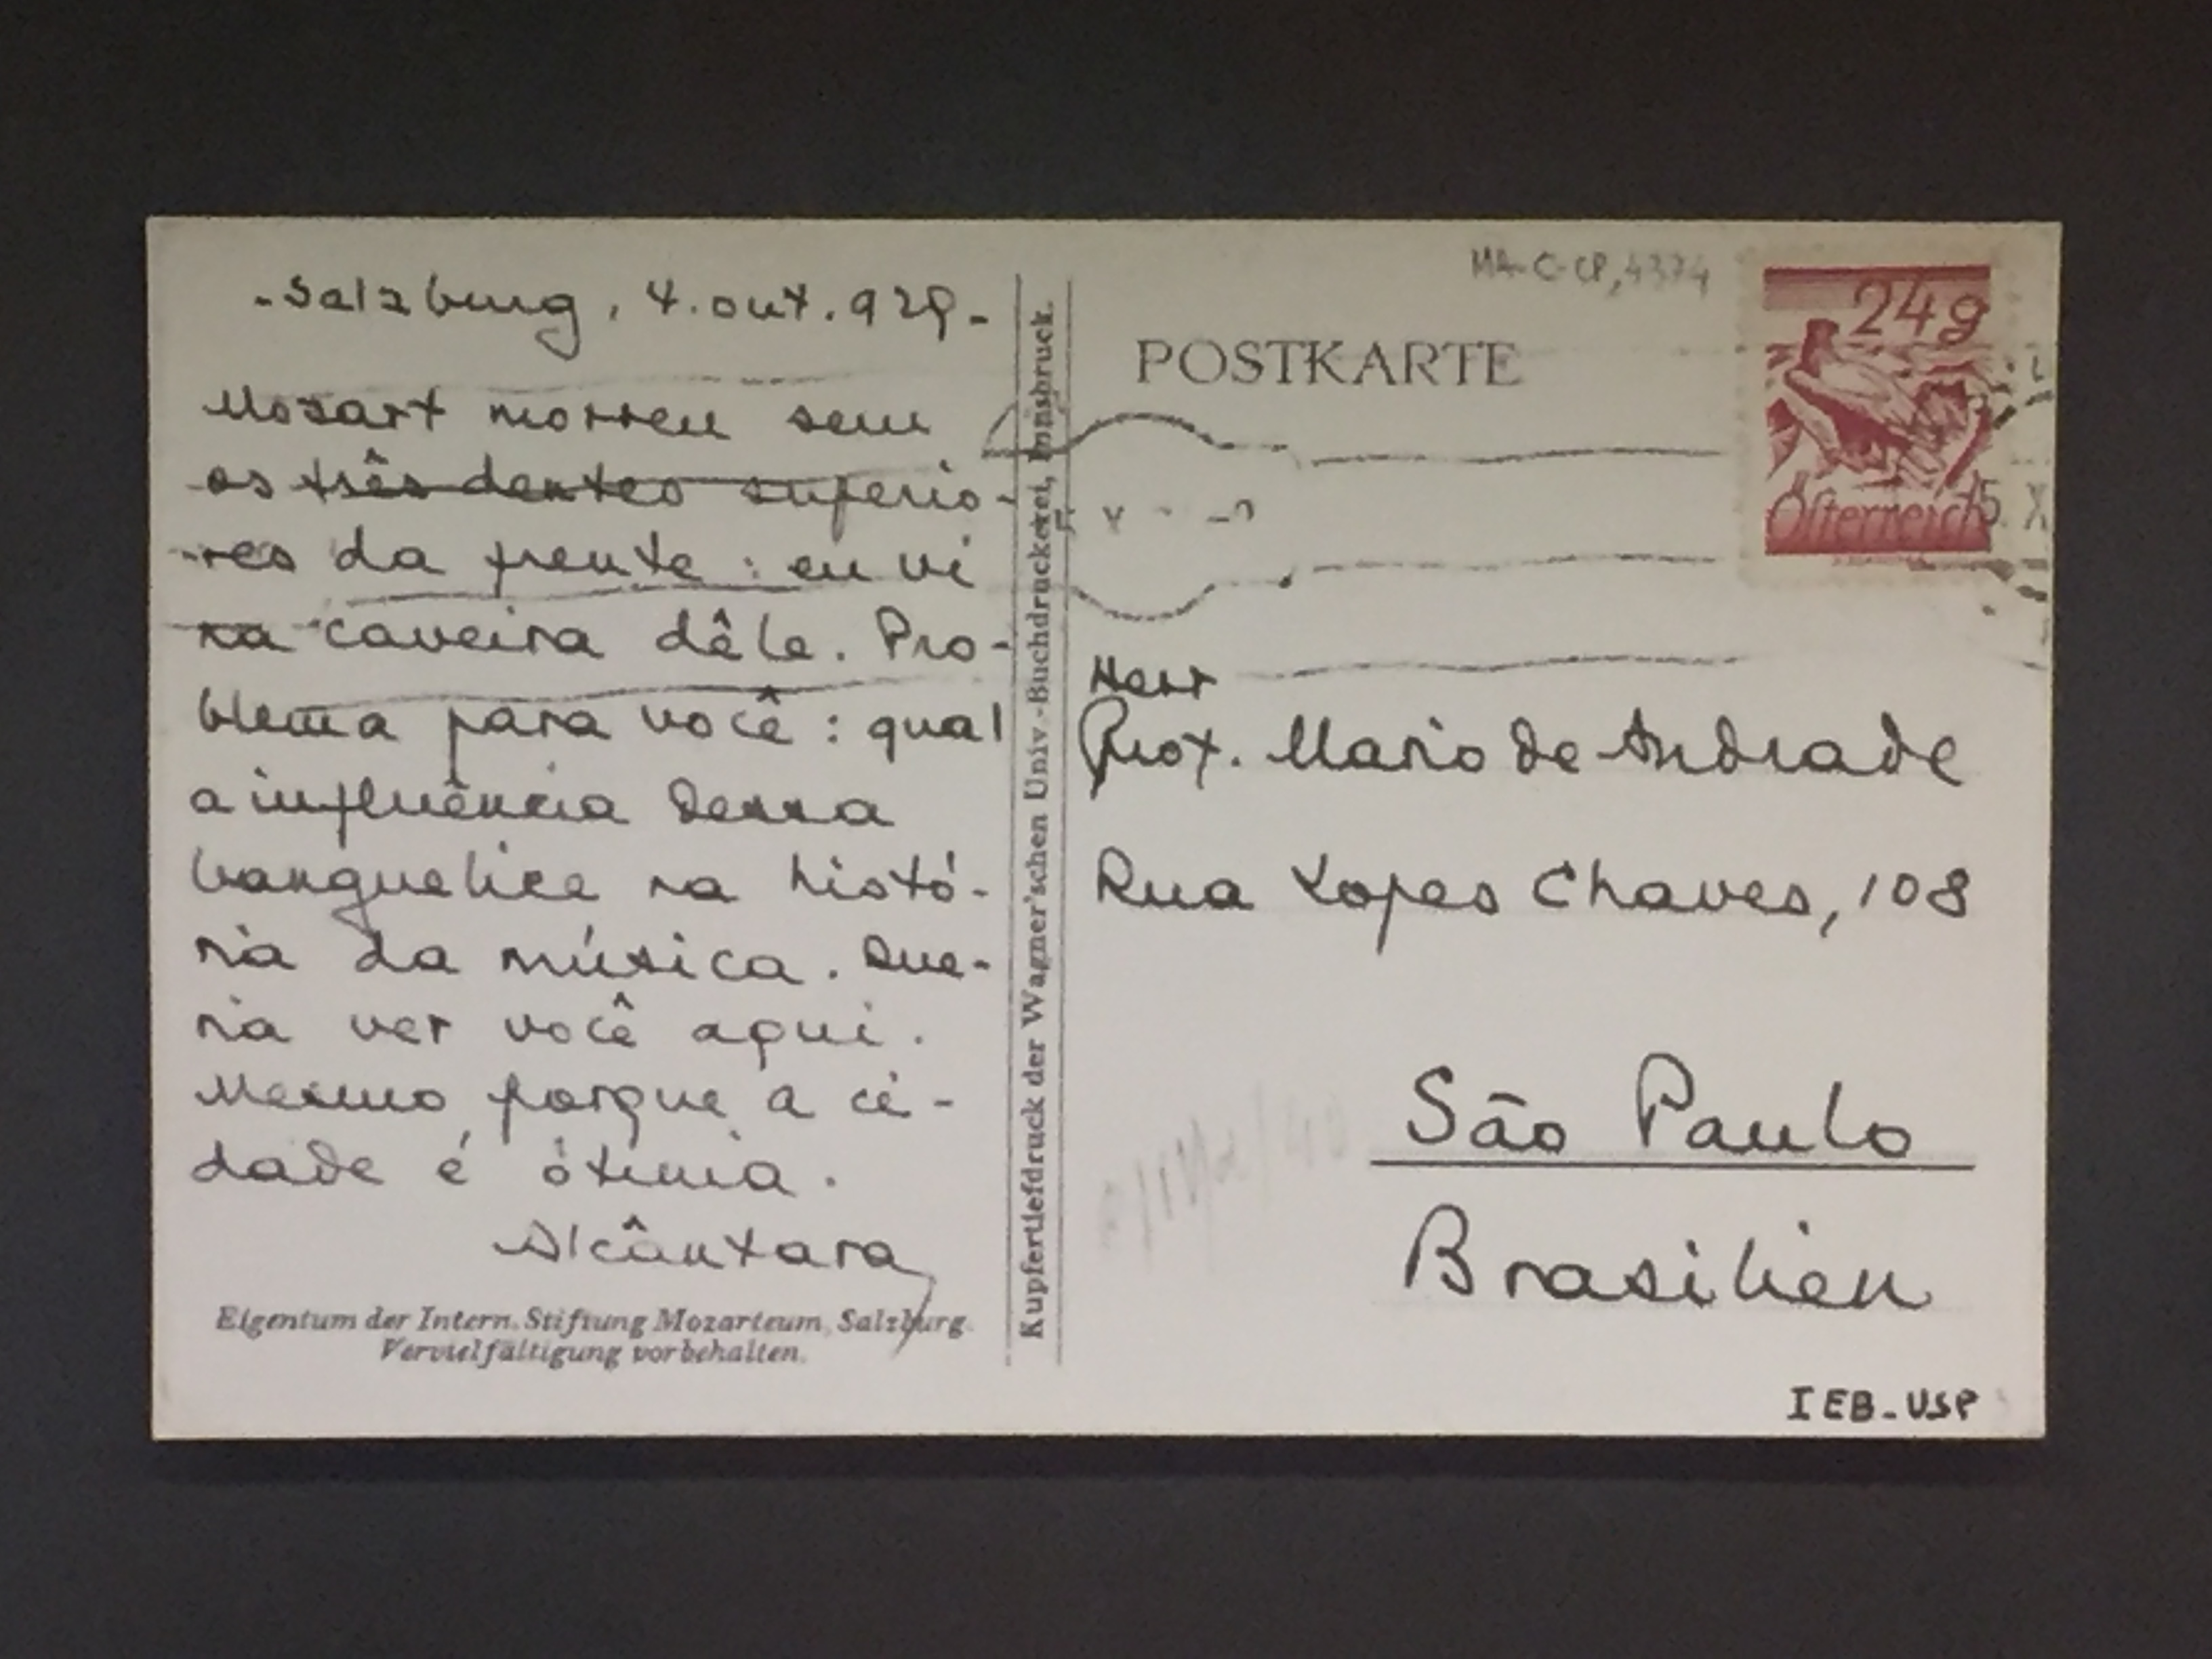 - Salzburg, 4. out. 929 -
Mozart morreu sem
os três dentes superio-
res da frente: eu vi
na caveira dêle. Pro-
blema para você: qual
a influência dessa
banguelice na histó-
ria da música. Que-
ria ver você aqui.
Mesmo porque a ci-
dade é ótima.
Alcântara
Eigentum der Intern. Stiftung Mozarteum, Salzburg.
Vervielfältigung vorbehalten.
Kupfertiefdruck der Wagner'schen Univ.-Buchdruckerei, Innsbruck.
MA-C-CP, 4374
POSTKARTE
24g
Österreich
Herr
Prof. Mario de Andrade
Rua Lopes Chaves, 108
São Paulo
Brasilien
IEB-USP